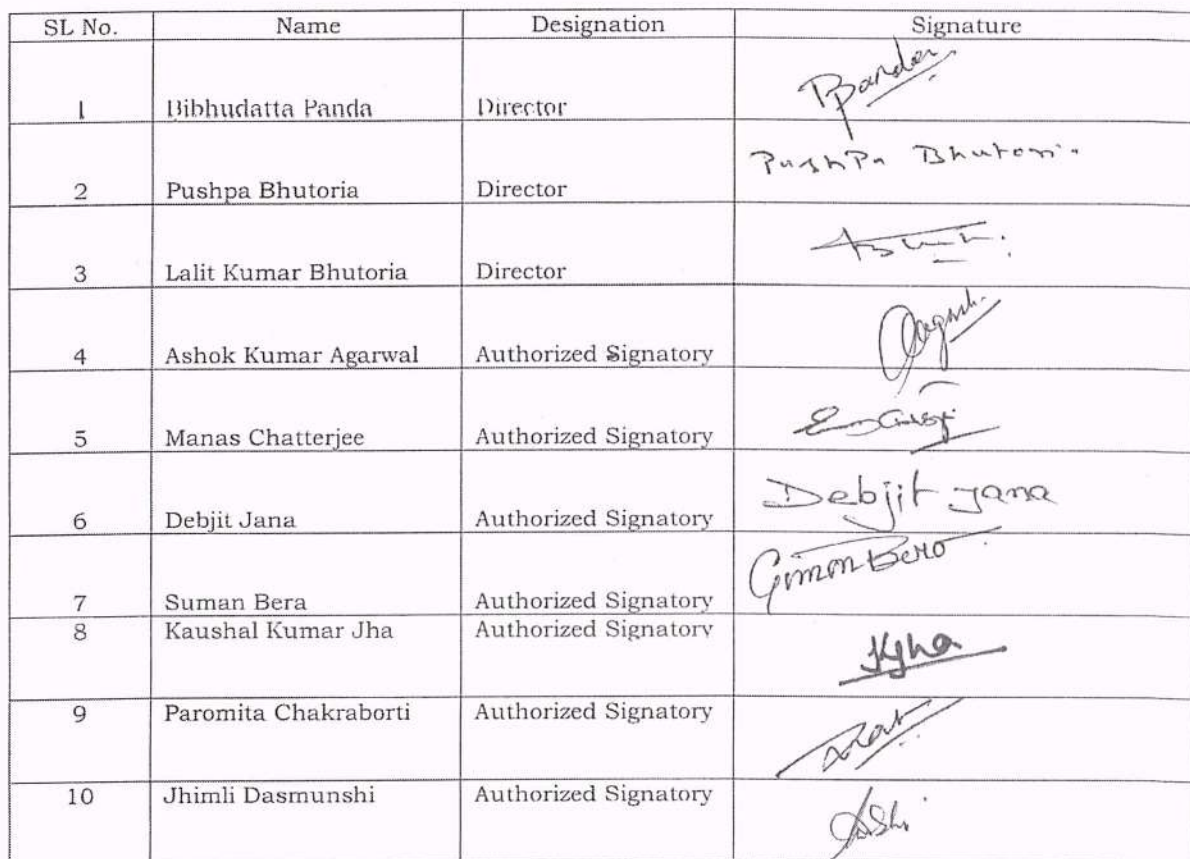 SL No. Name Designation Signature
1 Bibhudatta Panda Director BPanda
2 Pushpa Bhutoria Director PushPa Bhutoria
3 Lalit Kumar Bhutoria Director
4 Ashok Kumar Agarwal Authorized Signatory
5 Manas Chatterjee Authorized Signatory
6 Debjit Jana Authorized Signatory Debjit Jana
7 Suman Bera Authorized Signatory
8 Kaushal Kumar Jha Authorized Signatory KJha
9 Paromita Chakraborti Authorized Signatory
10 Jhimli Dasmunshi Authorized Signatory